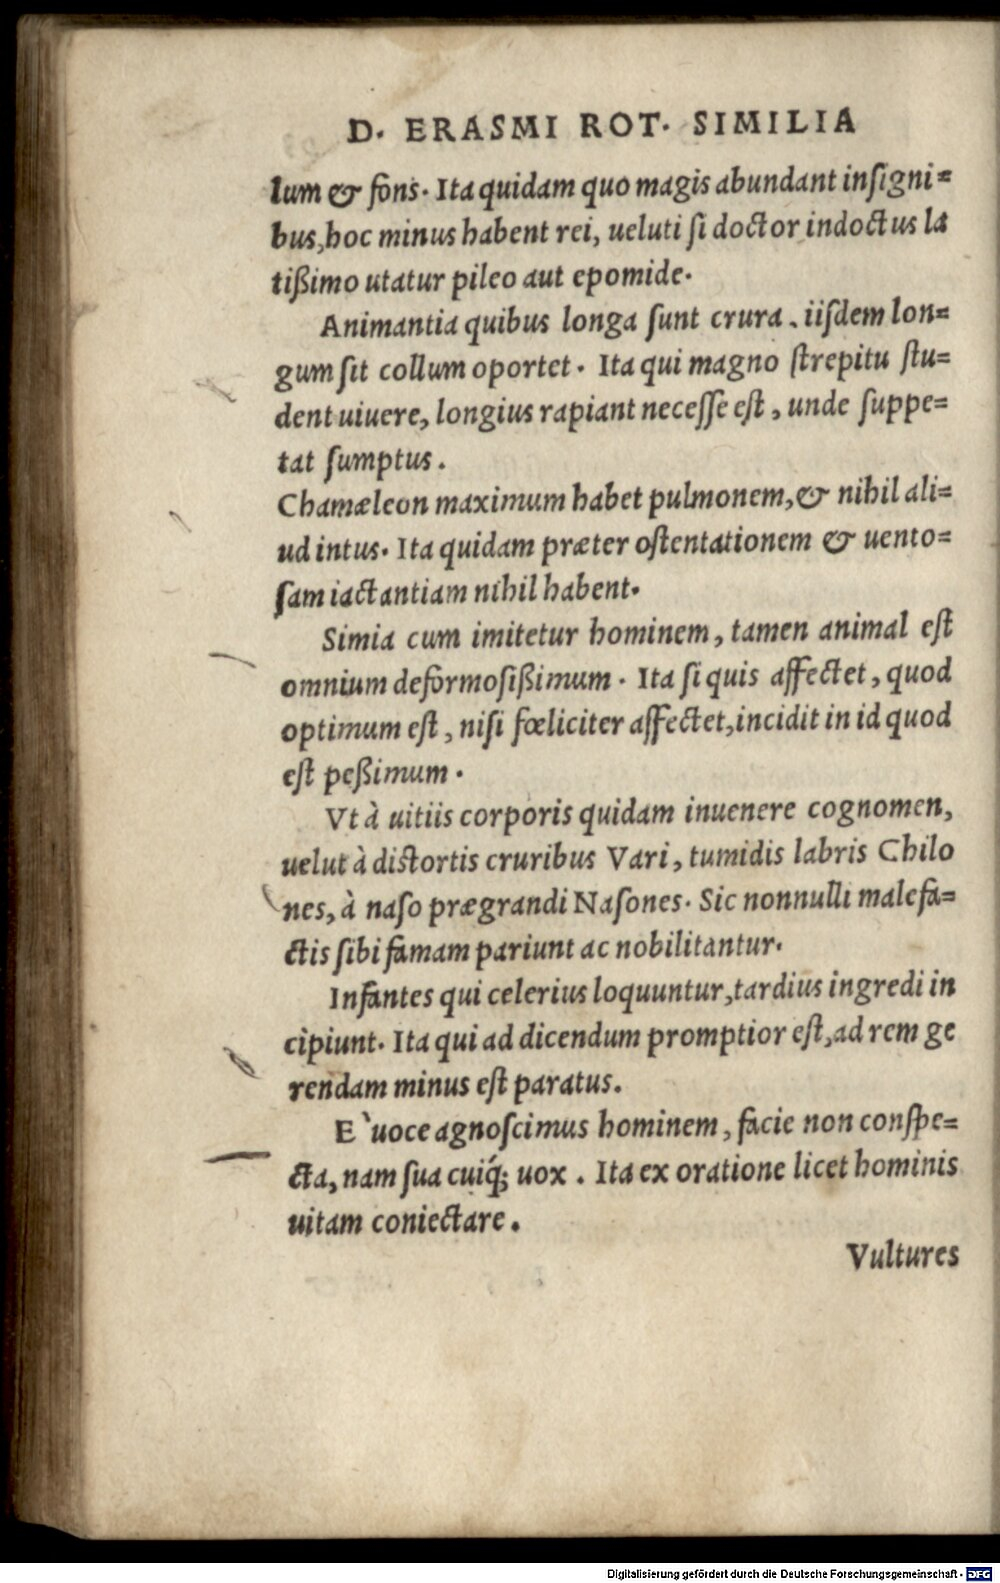 D. ERASMI ROT. SIMILIA
lum & fons. Ita quidam quo magis abundant inſigni=
bus, hoc minus habent rei, ueluti ſi doctor indoctus la
tißimo utatur pileo aut epomide.
Animantia quibus longa ſunt crura, iiſdem lon=
gum ſit collum oportet. Ita qui magno ſtrepitu ſtu=
dent uiuere, longius rapiant neceſſe eſt, unde ſuppe=
tat ſumptus.
Chamæleon maximum habet pulmonem, & nihil ali=
ud intus. Ita quidam præter oſtentationem & uento=
ſam iactantiam nihil habent.
Simia cum imitetur hominem, tamen animal eſt
omnium deformoſißimum. Ita ſi quis affectet, quod
optimum eſt, niſi fœliciter affectet, incidit in id quod
eſt peßimum.
Vt à uitiis corporis quidam inuenere cognomen,
uelut à diſtortis cruribus Vari, tumidis labris Chilo
nes, à naſo prægrandi Naſones. Sic nonnulli malefa=
ctis ſibi famam pariunt ac nobilitantur.
Infantes qui celerius loquuntur, tardius ingredi in
cipiunt. Ita qui ad dicendum promptior eſt, ad rem ge
rendam minus eſt paratus.
E` uoce agnoſcimus hominem, facie non conſpe=
cta, nam ſua cuiq́; uox. Ita ex oratione licet hominis
uitam coniectare.
Vultures
Digitalisierung gefördert durch die Deutsche Forschungsgemeinschaft - DFG